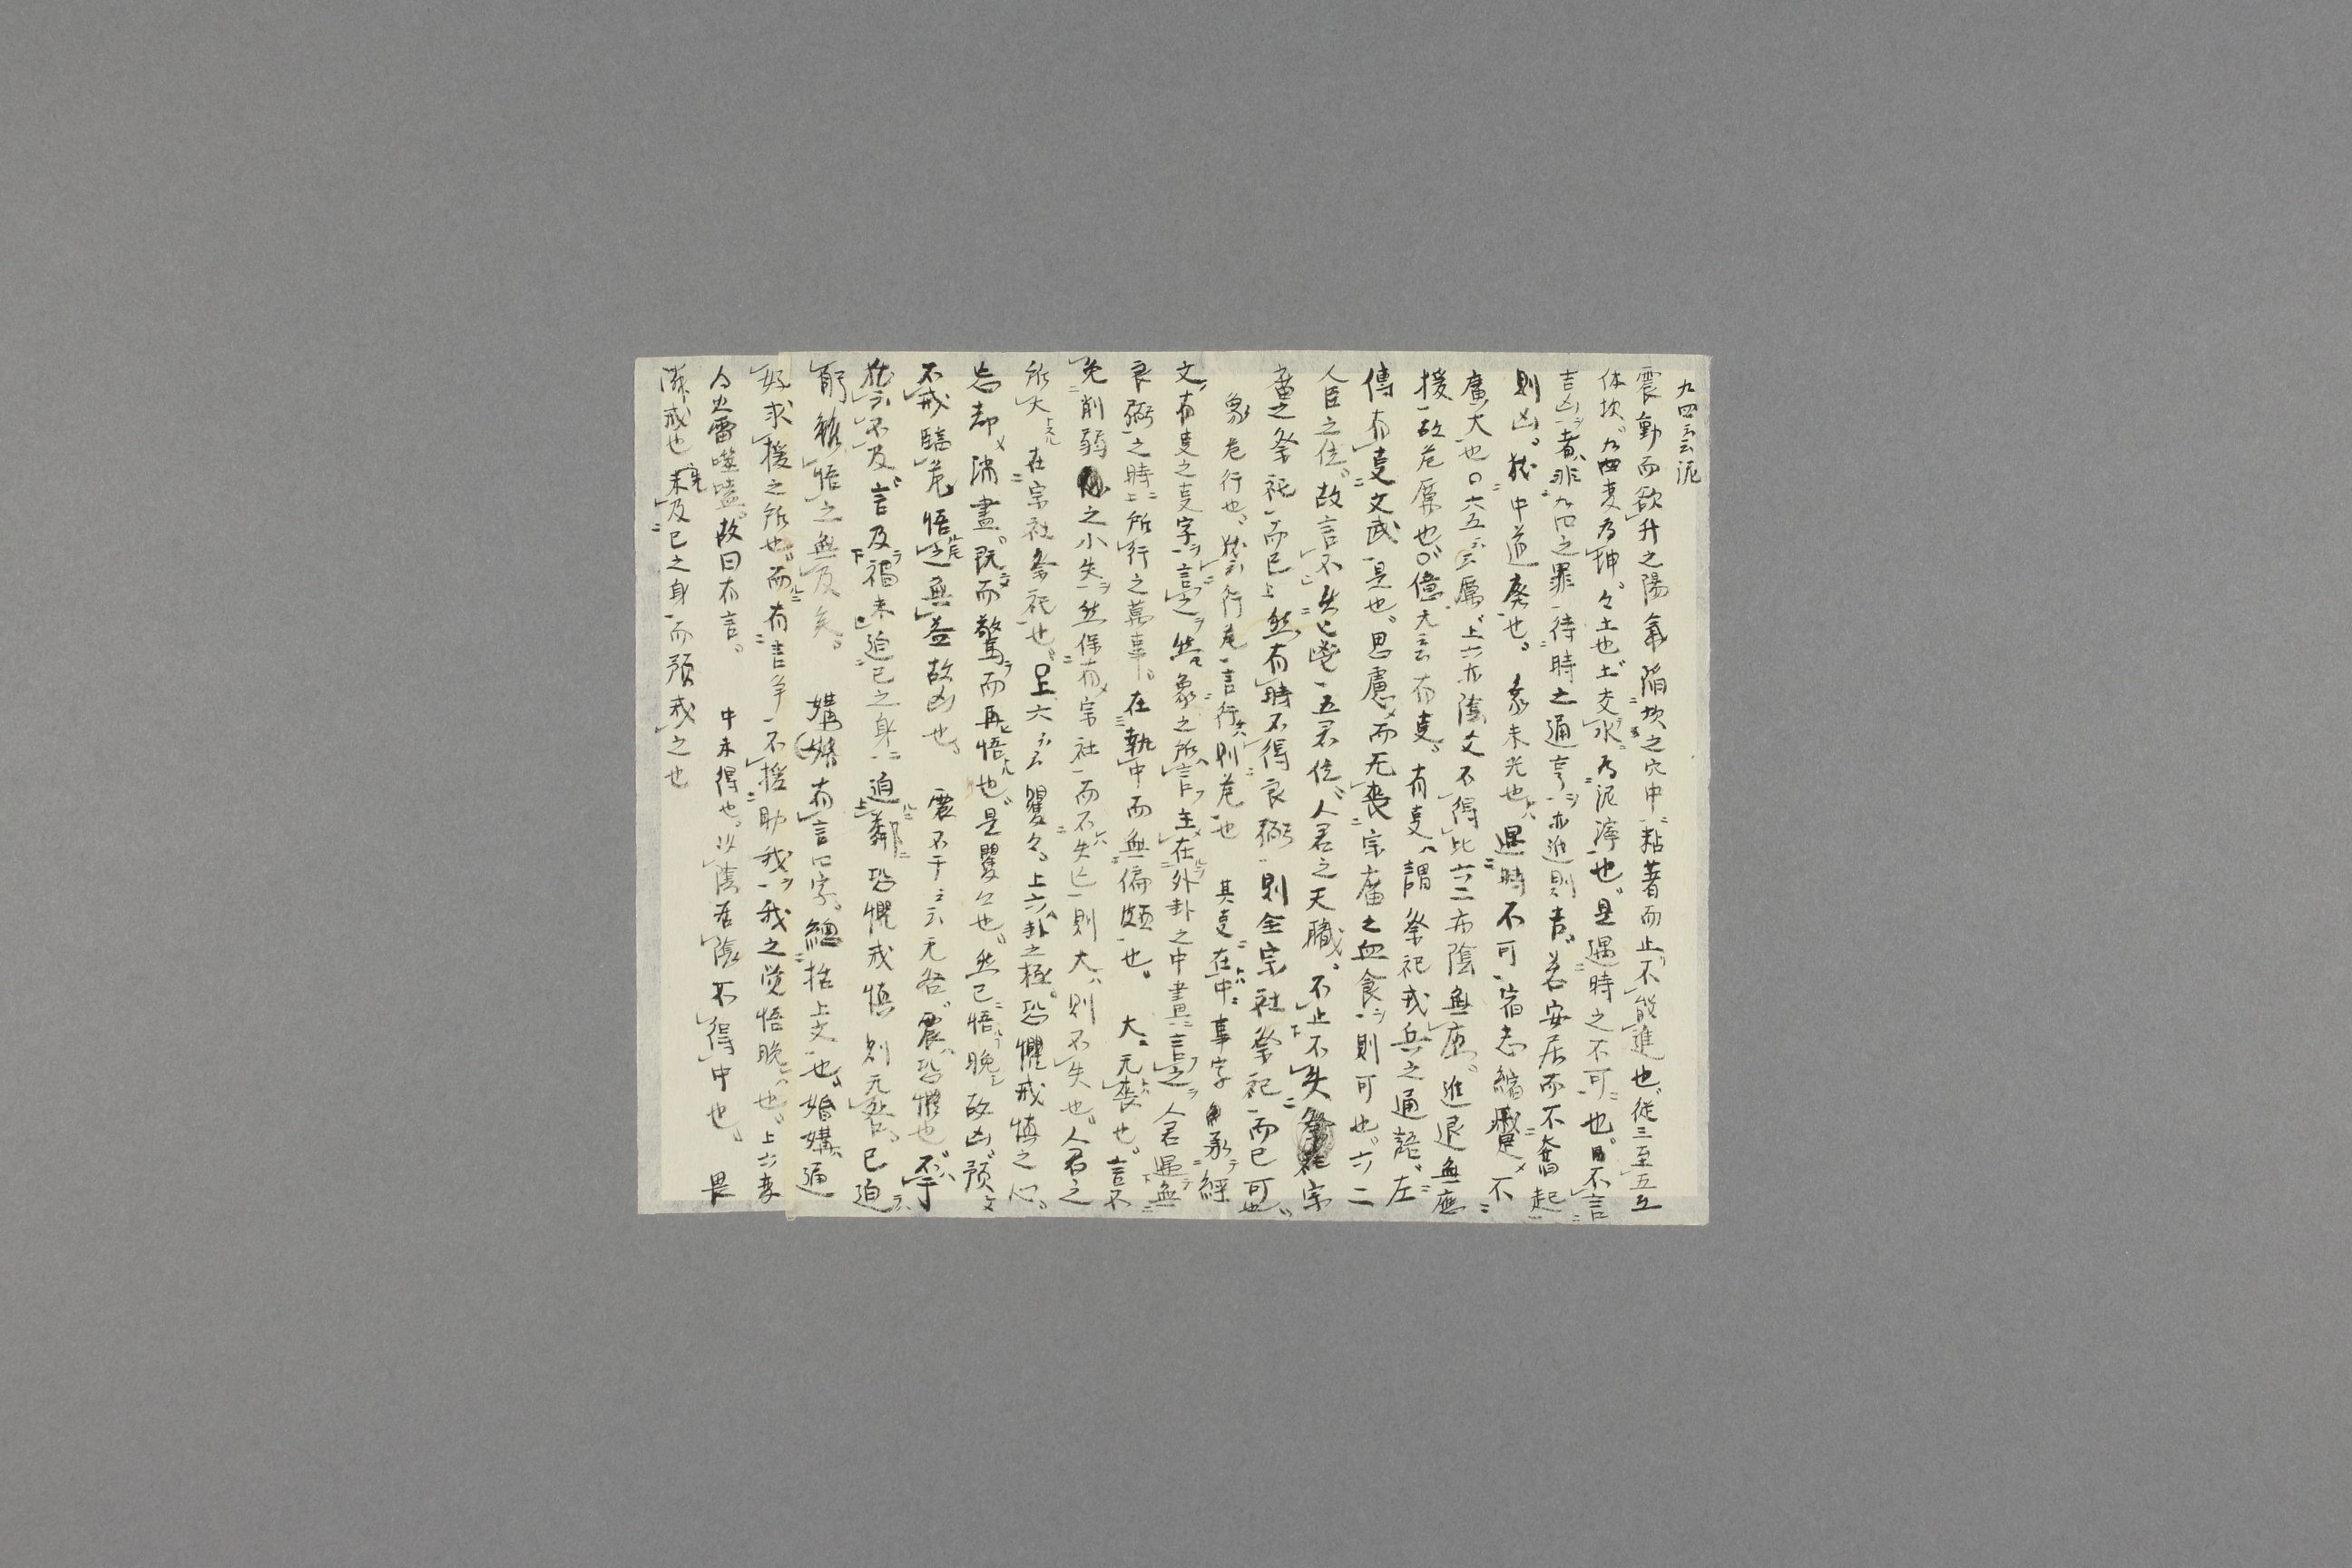 九四云云泥
震動而欲升之陽氣陷坎之穴中粘著而止不能進也從三至五互
体坎九四変為坤々土也土交水為泥濘也是遇時之不可也不言
吉凶者非九四之罪待時之通亨亦進則吉若安居而不奮起
則凶猶中道廃也 象未光也遇時不可宿志縮蹙不
廣大也○六五云云厲上六亦陰爻不得比六二亦陰無應進退無應
援故危厲也○億无云云有叓有叓謂祭祀戎兵之通語左
傳有叓文武是也思慮而无喪宗廟之血食則可也六二
人臣之位故言不失匕鬯五君位人君之天職不止不失宗
廟之祭祀而已上然有時不得良弼則全宗社祭祀而已可也
象危行也猶云行危言行則危也 其叓在中事字承經
文有叓之叓字言之然象之所言主在外卦之中畫言之人君遇無
良弼之時上所行之萬事在執中而無偏頗也 大无喪也言不
免削弱之小失然保有宗社而不失亡則大則不失也人君之
所大在宗社祭祀也上六云云矍々上六卦之極恐懼戒慎之心
忘却沸盡既而驚而再悟也是矍々也然已悟晚故凶預
不戒臨危悟之無益故凶也 震不于云云无咎震恐懼也不于
猶云不及言及禍未迫已之身迫鄰恐懼戒慎則无咎已迫
躬雖悟之無及矣 媾婚有言四字總括上文也婚媾通
好求援之所也而有言争不援助我我之覚悟晚也上六変
為火雷噬嗑故曰有言 中未得也以陰居陰不得中也 畏
隣戒也未及已之身而預戒之也